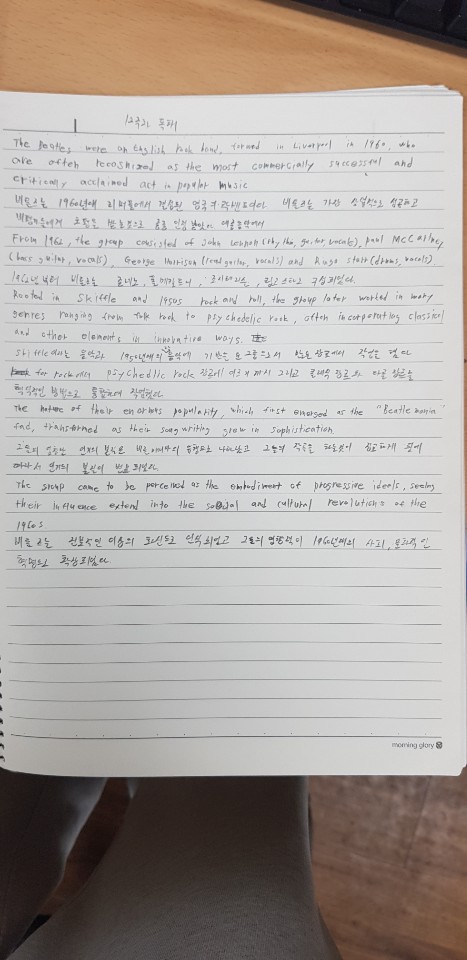 12주차 독해
The Beatles were an English rock band, formed in Liverpool in 1960, who
are often recognized as the most commercially successful and
critically acclaimed act in popular music
비틀즈는 1960년에 리버풀에서 결성된 영국의 락밴드이다 비틀즈는 가장 상업적으로 성공하고
From 1962, the group consisted of John Lennon (rhythm, guitar, vocals), paul McCartney
(bass guitar, vocals), George Harrison (lead guitar, vocals) and Ringo Starr (drums, vocals).
1962년부터 비틀즈는 존레논, 폴 매카트니, 조지해리슨, 링고스타로 구성되었다.
Rooted in skiffle and 1950s rock and roll, the group later worked in many
genres ranging from folk rock to psychedelic rock, often incorporating classical
and other elements in innovative ways.
음악과 1950년대의 음악에 기반을 둔 그룹으로서 많은 장르에서 작업을 했다
rock에서 psychedlic rock 장르에 이르기까지 그리고 클래식 장르와 다른 장르를
혁신적인 방법으로 통합하여 작업했다
The nature of their enormous popularity, which first emerged as the "Beatle mania"
fad, transformed as their songwriting grew in sophistication
그들의
따라서 변하게 되었다.
The group came to be perceived as the embodiment of progressive ideals, seeing
their influence extend into the social and cultural revolutions of the
1960s
비틀즈는 진보적인 이상의 인식되었고 그들의 영향력이 1960년대의 사회, 문화적인
혁명으로 확장되었다.
morning glory